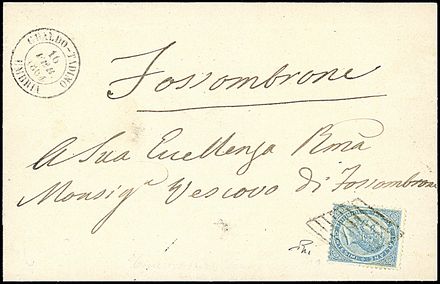 GUALDO-TADINO
16
FEB
UMBRIA
Fossombrone
A Sua Eccellenza Rma
Monsigr Vescovo di Fossombrone